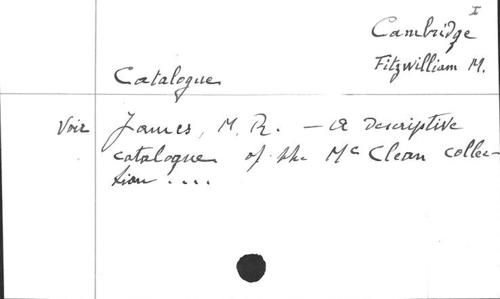 I
Cambridge
Fitzwilliam M.
Catalogue
Voir James, M. R. — A descriptive
catalogue of the Mc Clean collec-
tion ....